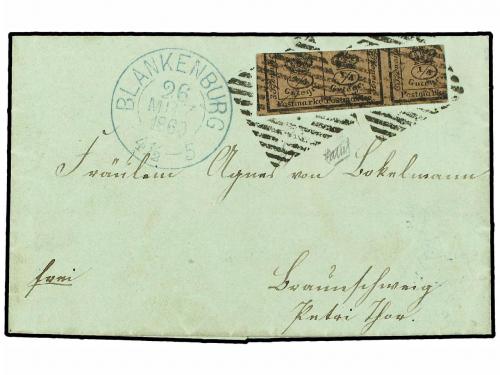 BLANKENBURG
26
1/4 1/4 1/4
Postmarke Postmarke Postmarke
Fräulein Agnes von Bokelmann
frei
Braunschweig
Petri Thor.